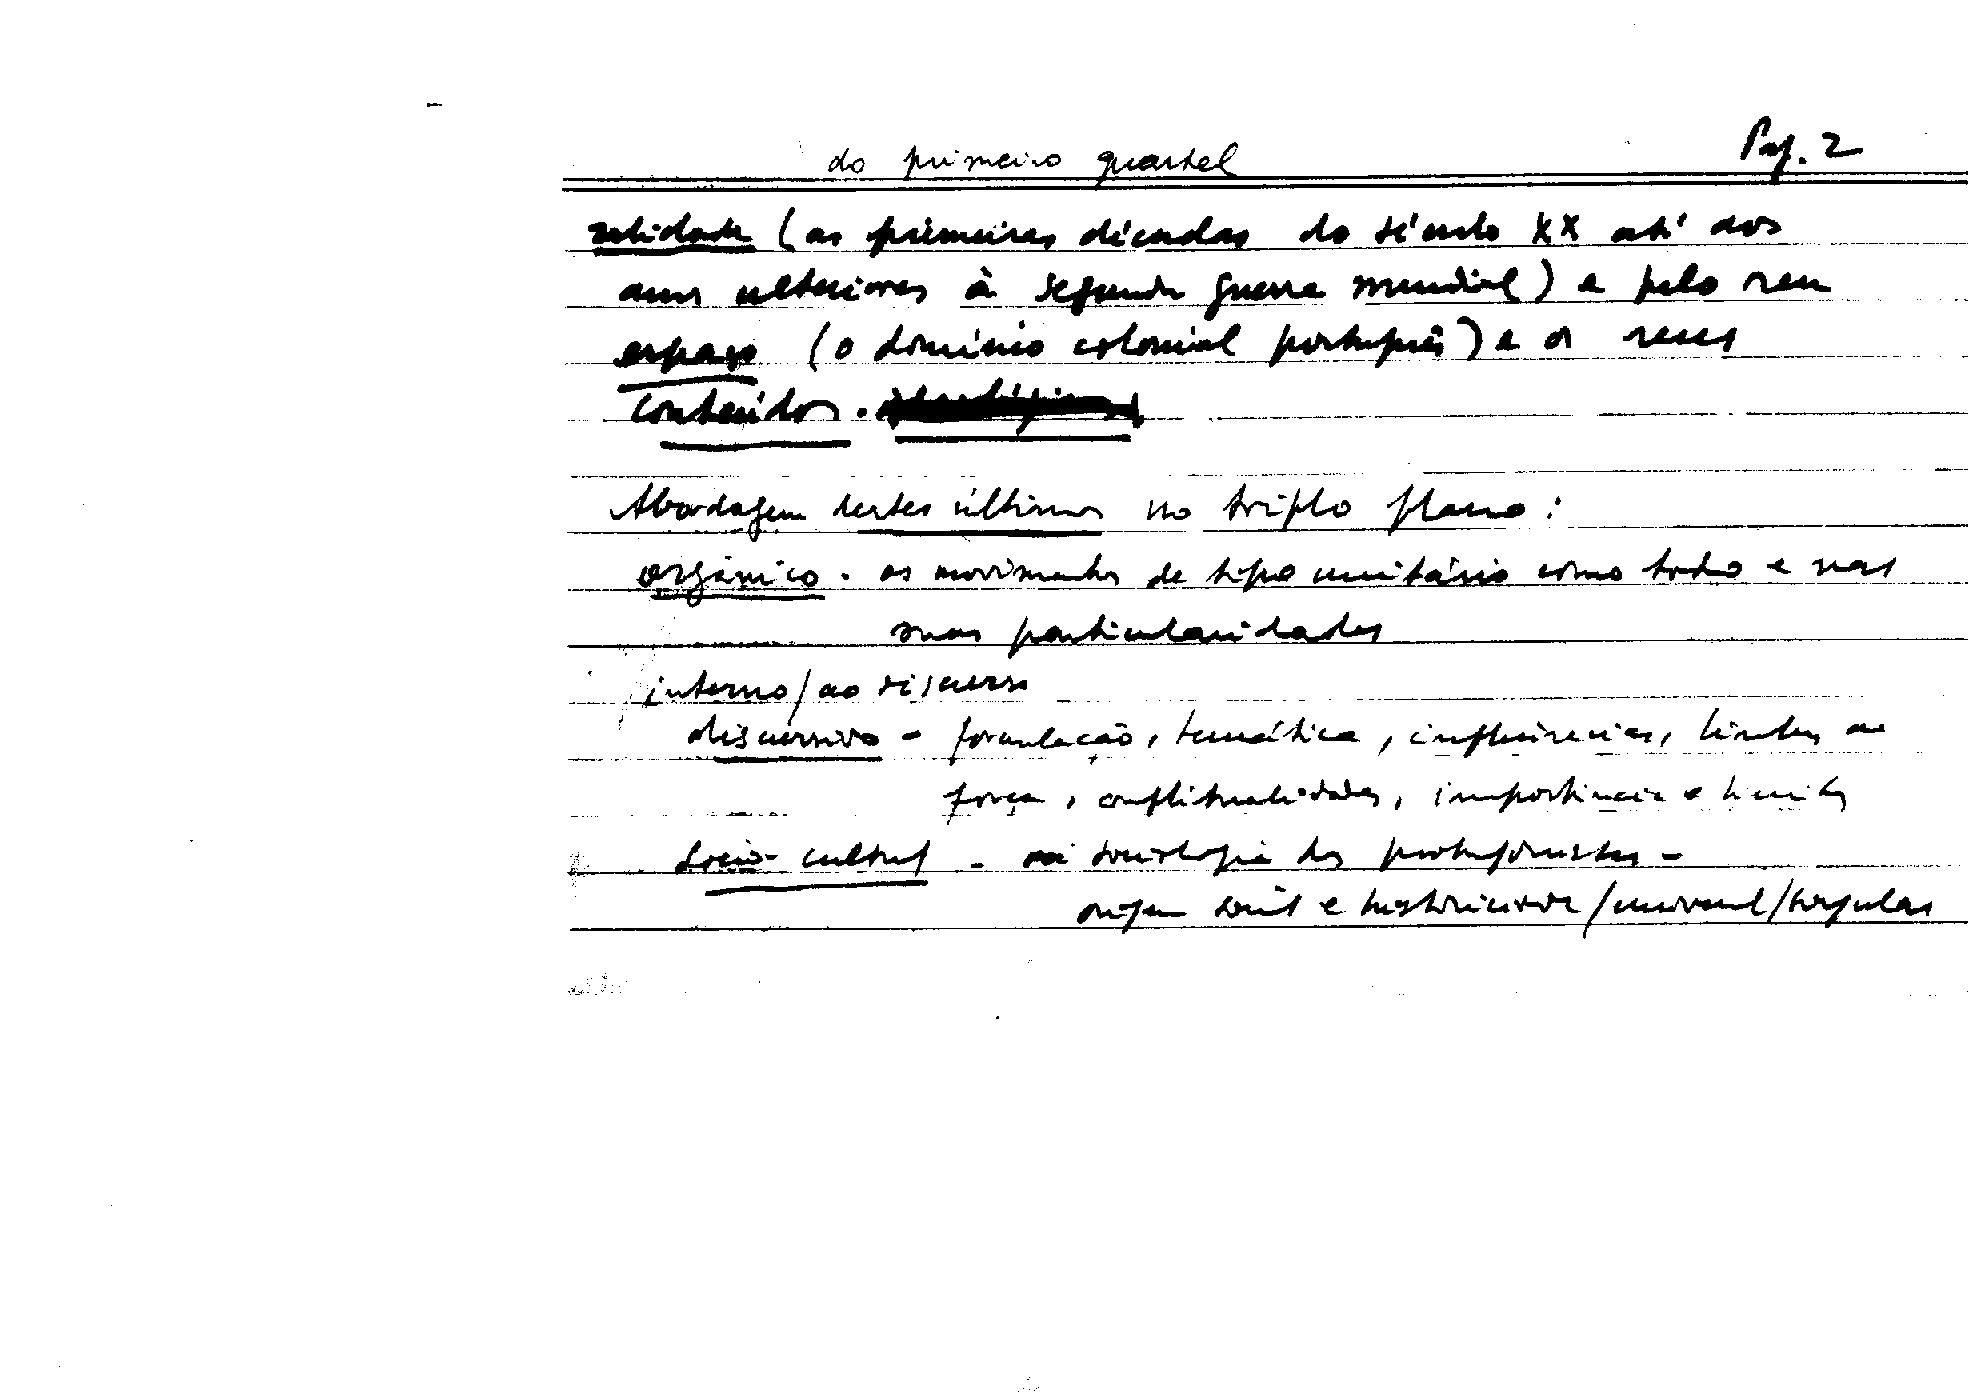 do primeiro quartel
Pag. 2
(as primeiras décadas do século XX até aos
anos ulteriores à segunda guerra mundial) e pelo seu
espaço (o domínio colonial português) e os seus
conteúdos.
Abordagem destes últimos no triplo plano:
orgânico. os movimentos de tipo unitário como todo e nas
suas particularidades
interno/ao discurso
discursivo - formulação, temática, influências, linhas de
força, conflitualidades, importância e limites
Sócio-cultural - sociologia dos protagonistas -
origem social e historicidade/universal/